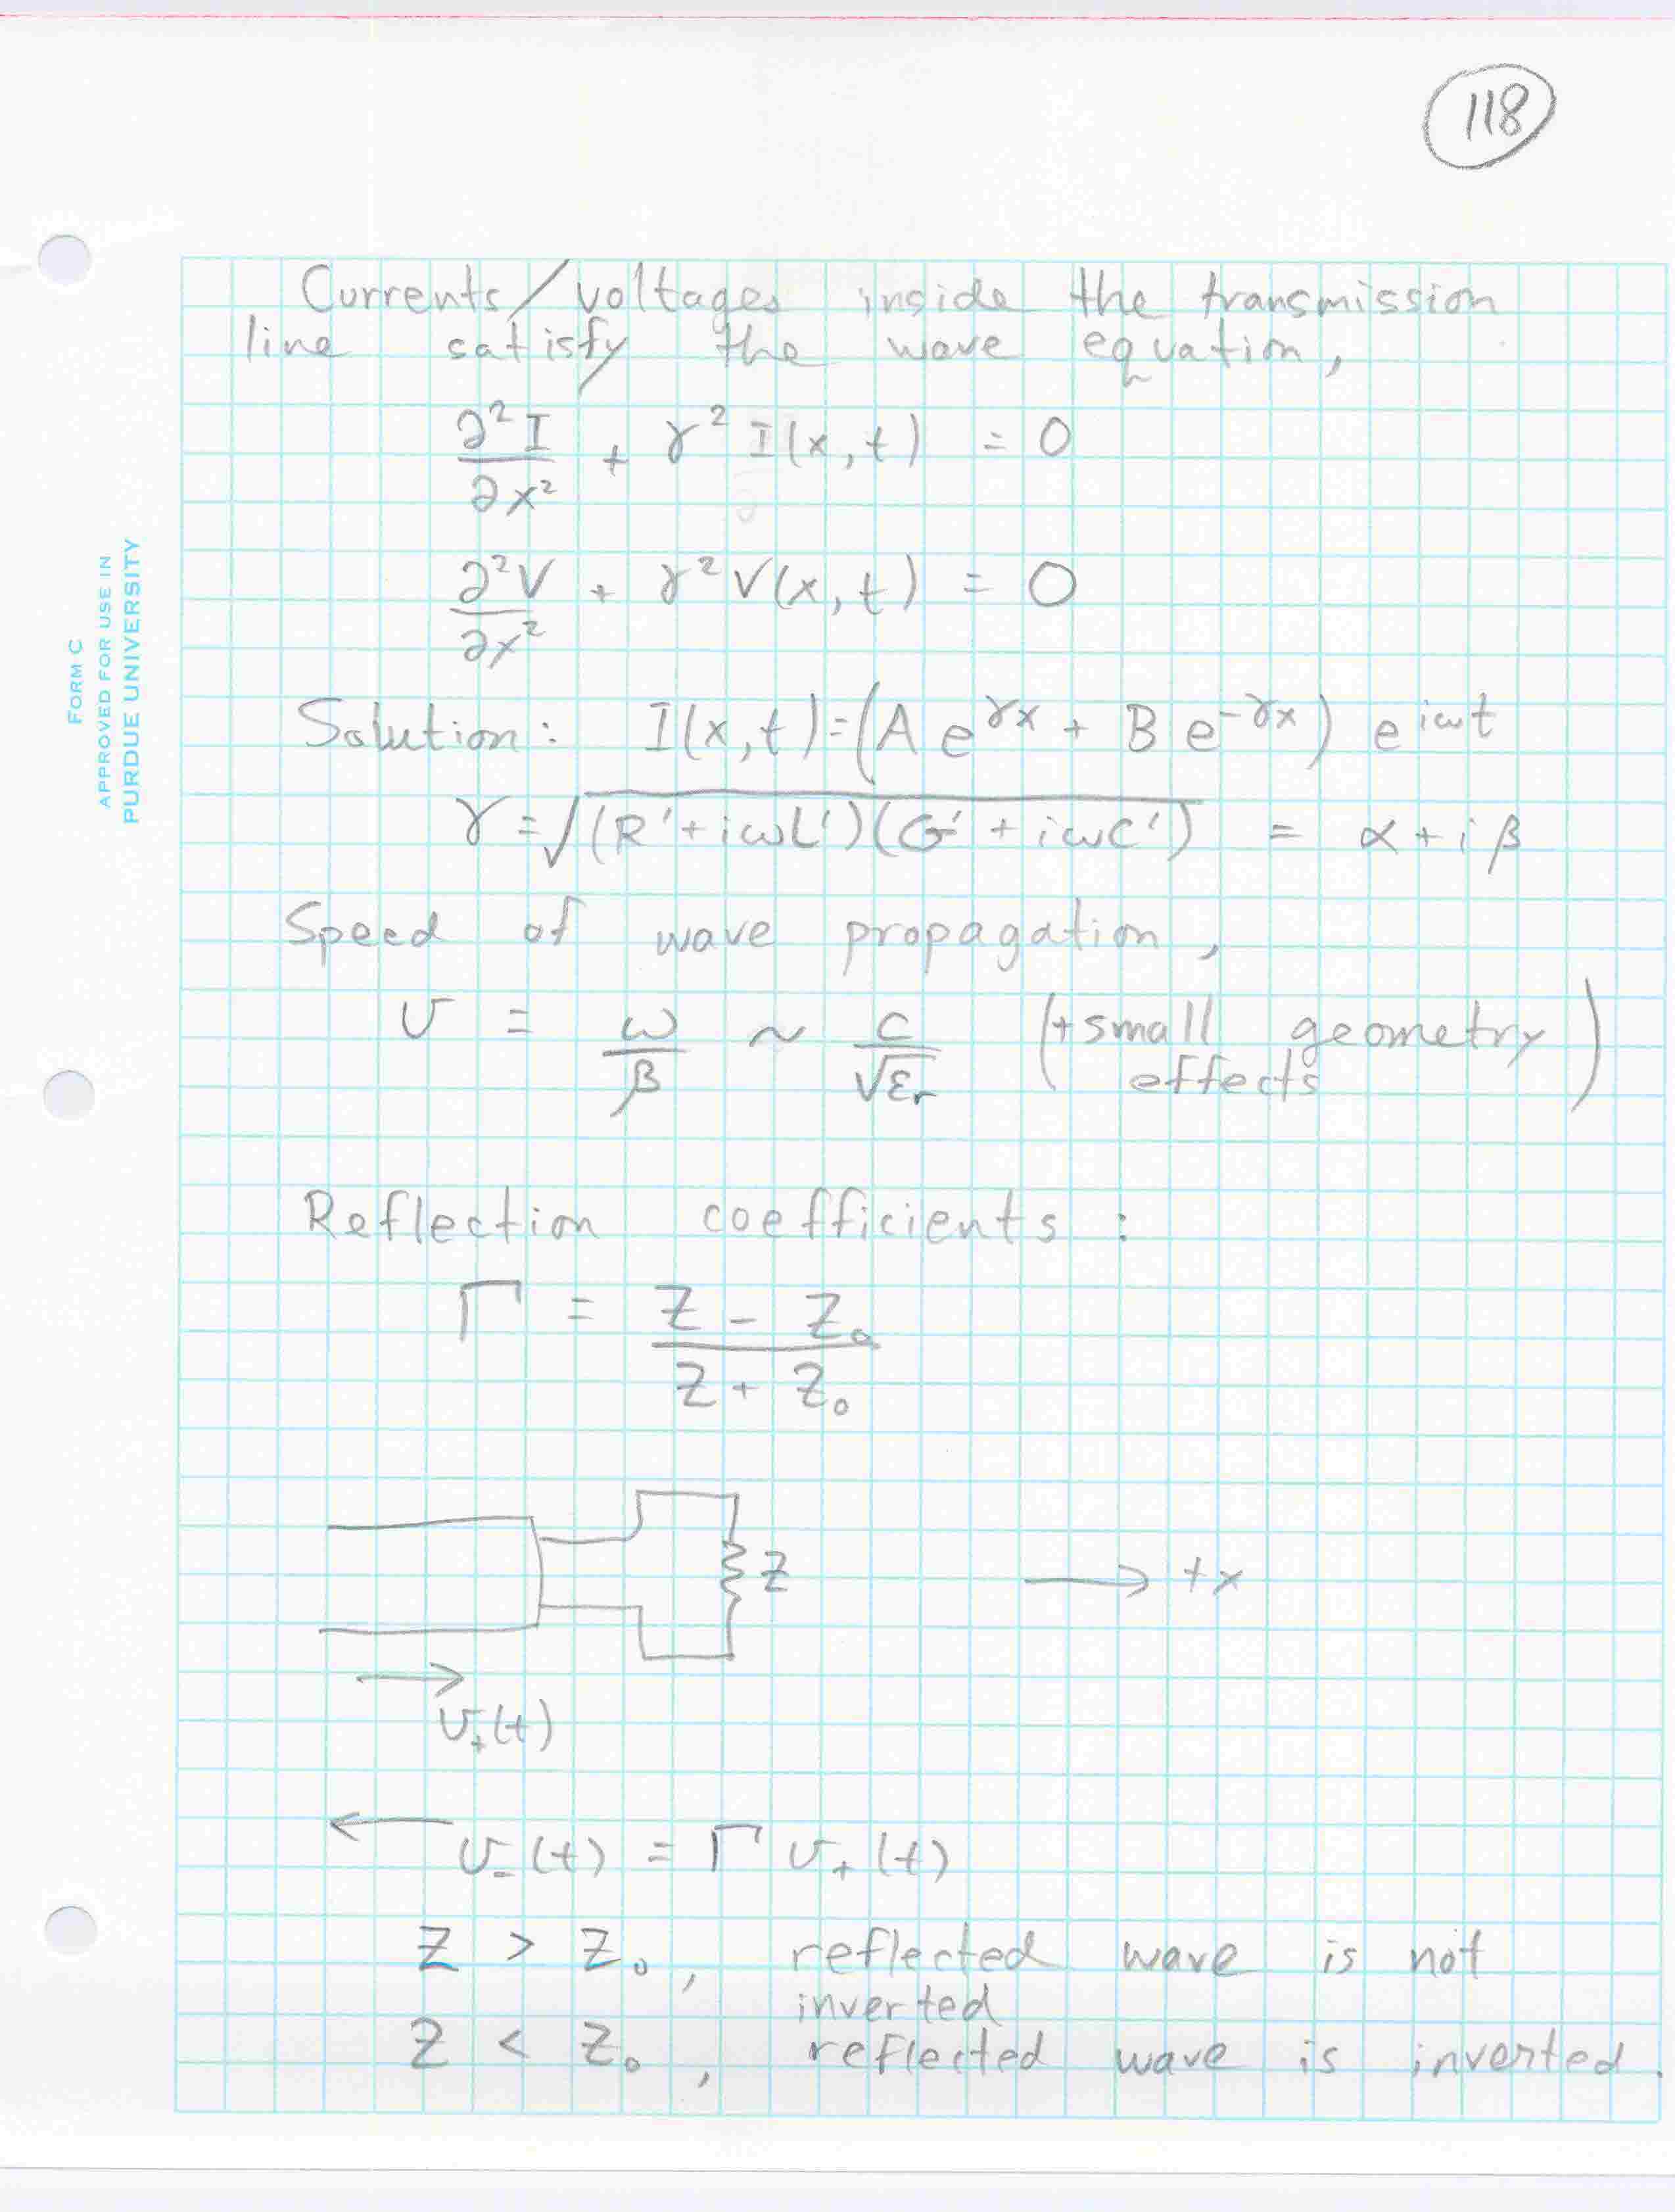 118
FORM C
APPROVED FOR USE IN
PURDUE UNIVERSITY
Currents/voltages inside the transmission
line satisfy the wave equation,
∂²I/∂x² + γ² I(x,t) = 0
∂²V/∂x² + γ² V(x,t) = 0
Solution: I(x,t) = (A e^{γx} + B e^{-γx}) e^{iωt}
γ = √((R' + iωL')(G' + iωC')) = α + iβ
Speed of wave propagation,
v = ω/β ~ c/√εr (+ small geometry
effects)
Reflection coefficients:
Γ = (Z - Z₀)/(Z + Z₀)
Z
→ +x
→
v₊(t)
←
v₋(t) = Γ v₊(t)
Z > Z₀, reflected wave is not
inverted
Z < Z₀, reflected wave is inverted.